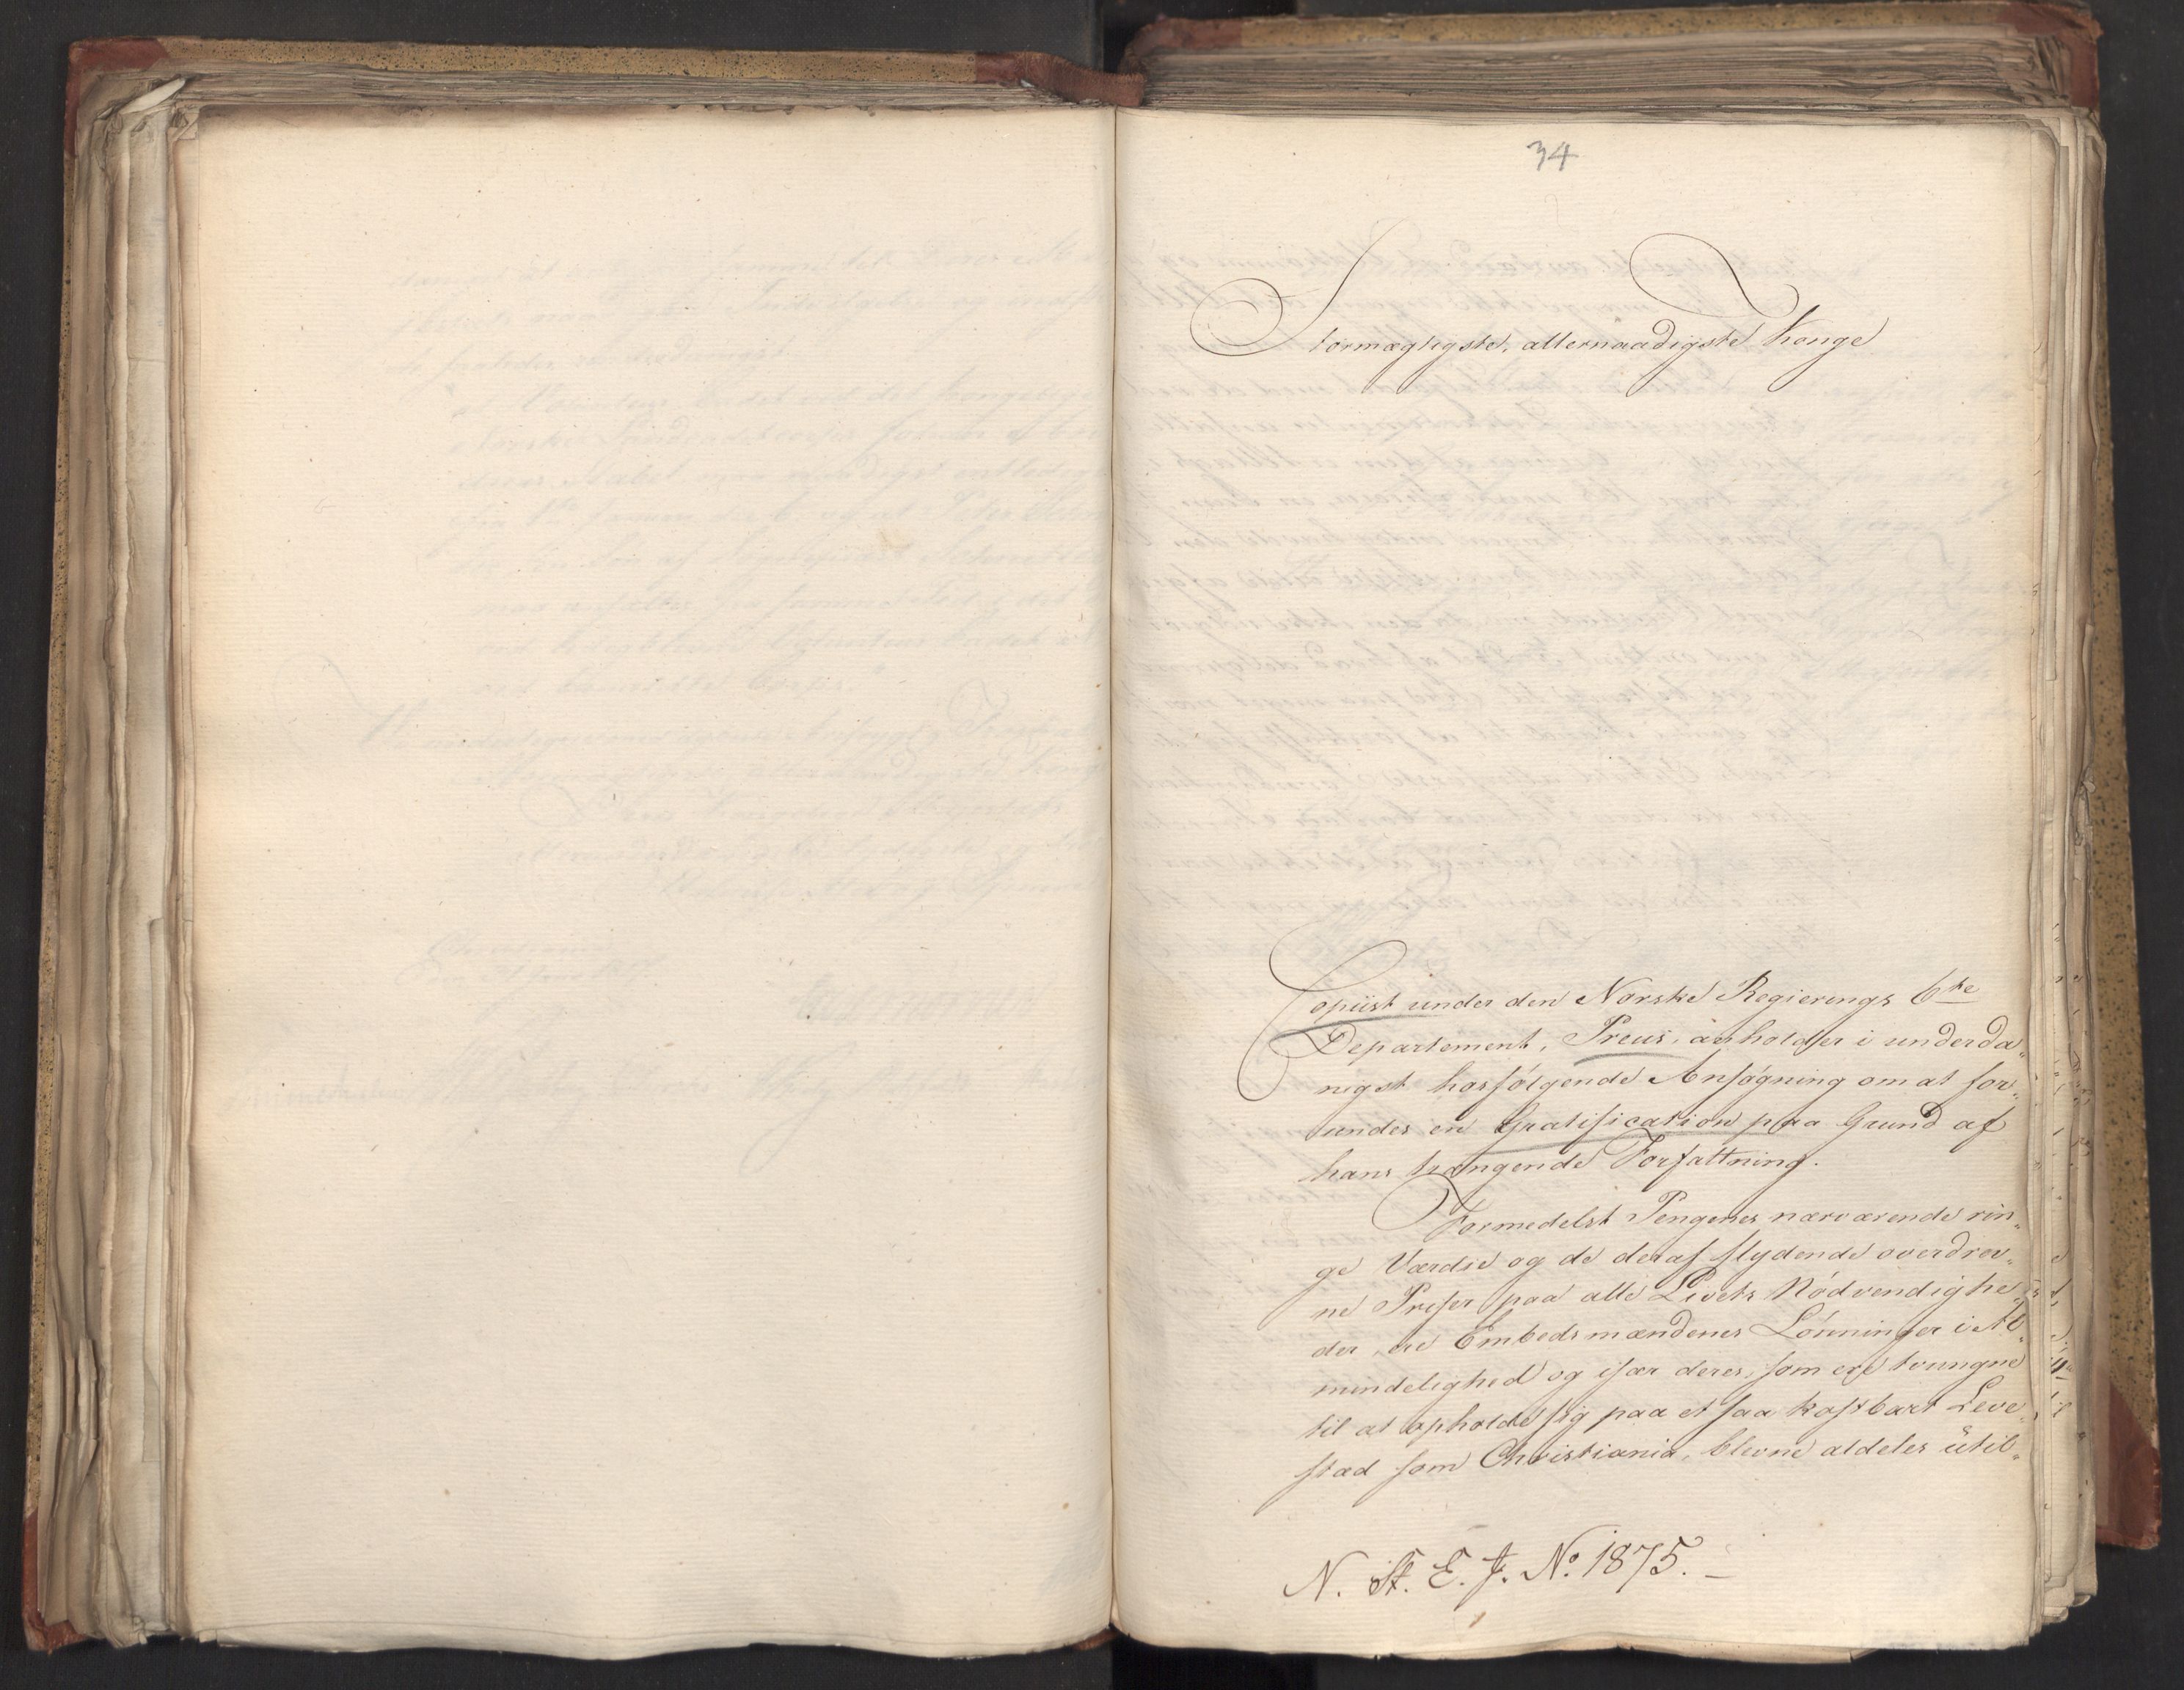 34
Stormægtigste, allernaadigste Konge
Copiist under den Norske Regierings 6te
Departement, Preus, anholder i underda„
nigst hosfølgende Ansøgning om at for„
undes en Gratification paa Grund af
hans trængende Forfattning.
Formedelst Pengenes nærværende rin„
ge Værdie og de deraf flydende overdrev„
ne Priser paa alle Livets Nødvendighe„
der, ere Embedsmændenes Lønninger i Al„
mindelighed og især deres, som ere tvungne
til at opholde sig paa et saa kostbart Leve„
stæd som Christiania, blevne aldeles util„
N. St. E. J. No. 1875.